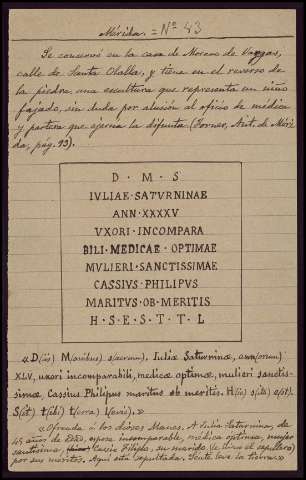 Mérida. = Nº 43
Se conservó en la casa de Moreno de Vargas,
calle de Santa Olalla, y tiene en el reverso de
la piedra una escultura que representa un niño
fajado, sin duda por alusión al oficio de médica
y partera que ejercía la difunta (Forner, Ant. de Méri-
da, pág. 93).
D · M · S
IVLIAE · SATVRNINAE
ANN · XXXXV
VXORI · INCOMPARA
BILI · MEDICAE · OPTIMAE
MVLIERI · SANCTISSIMAE
CASSIVS · PHILIPVS
MARITVS · OB · MERITIS
H · S · E · S · T · T · L
«D(iis) M(anibus) s(acrum). Iuliæ Saturninæ, ann(orum)
XLV, uxori incomparabili, medicæ optimæ, mulieri sanctis-
simæ, Cassius Philipus maritus ob meritis. H(ic) s(ita) e(st).
S(it) t(ibi) t(erra) l(evis).»
«Ofrenda á los dioses Manes. A Julia Saturnina, de
45 años de edad, esposa incomparable, médica óptima, mujer
santísima, Cassio Filipo, su marido, (le puso el sepulcro)
por sus méritos. Aquí está sepultada. Séate leve la tierra.»